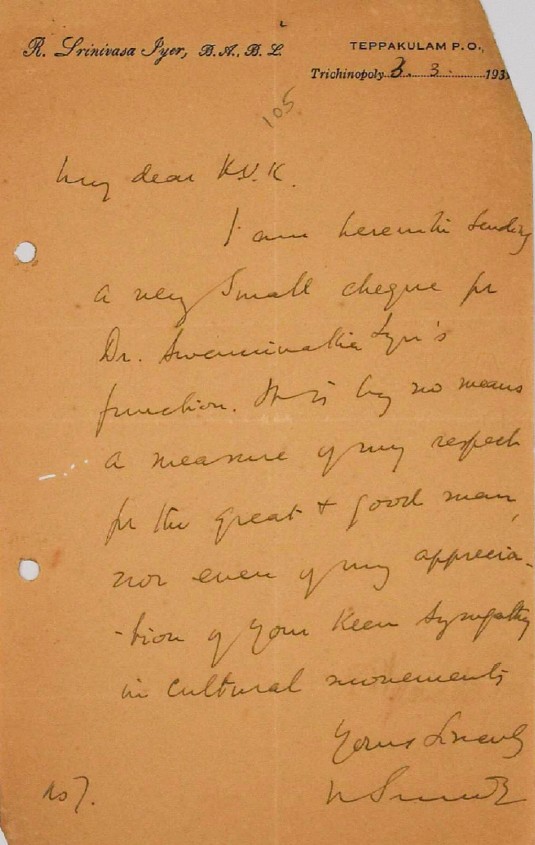 R. Srinivasa Iyer, B.A., B.L.
TEPPAKULAM P.O.,
Trichinopoly 3. 3. 193
105
My dear K.V.K.
I am herewith sending
a very small cheque for
Dr. Swaminatha Iyer's
function. It is by no means
a measure of my respect
for the great & good man,
nor even of my apprecia-
-tion of your keen sympathy
in cultural movements
Yours Sincerely